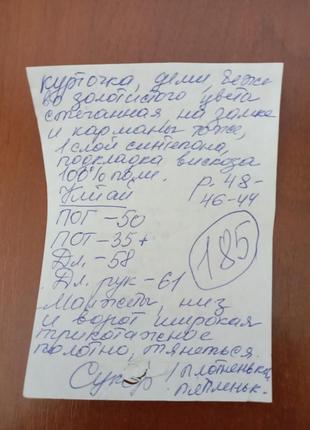 курточка, деми беже
во золотистого цвета
стёганная, на замке
и карманы тоже,
1 слой синтепона,
подкладка вискоза
100% поли.
Китай р. 48-
46-44
ПОГ - 50
ПОТ - 35+
185
Дл. - 58
Дл. рук - 61
Манжеты, низ
и ворот широкая
трикотажное
полотно, тянеться.
плотненька,